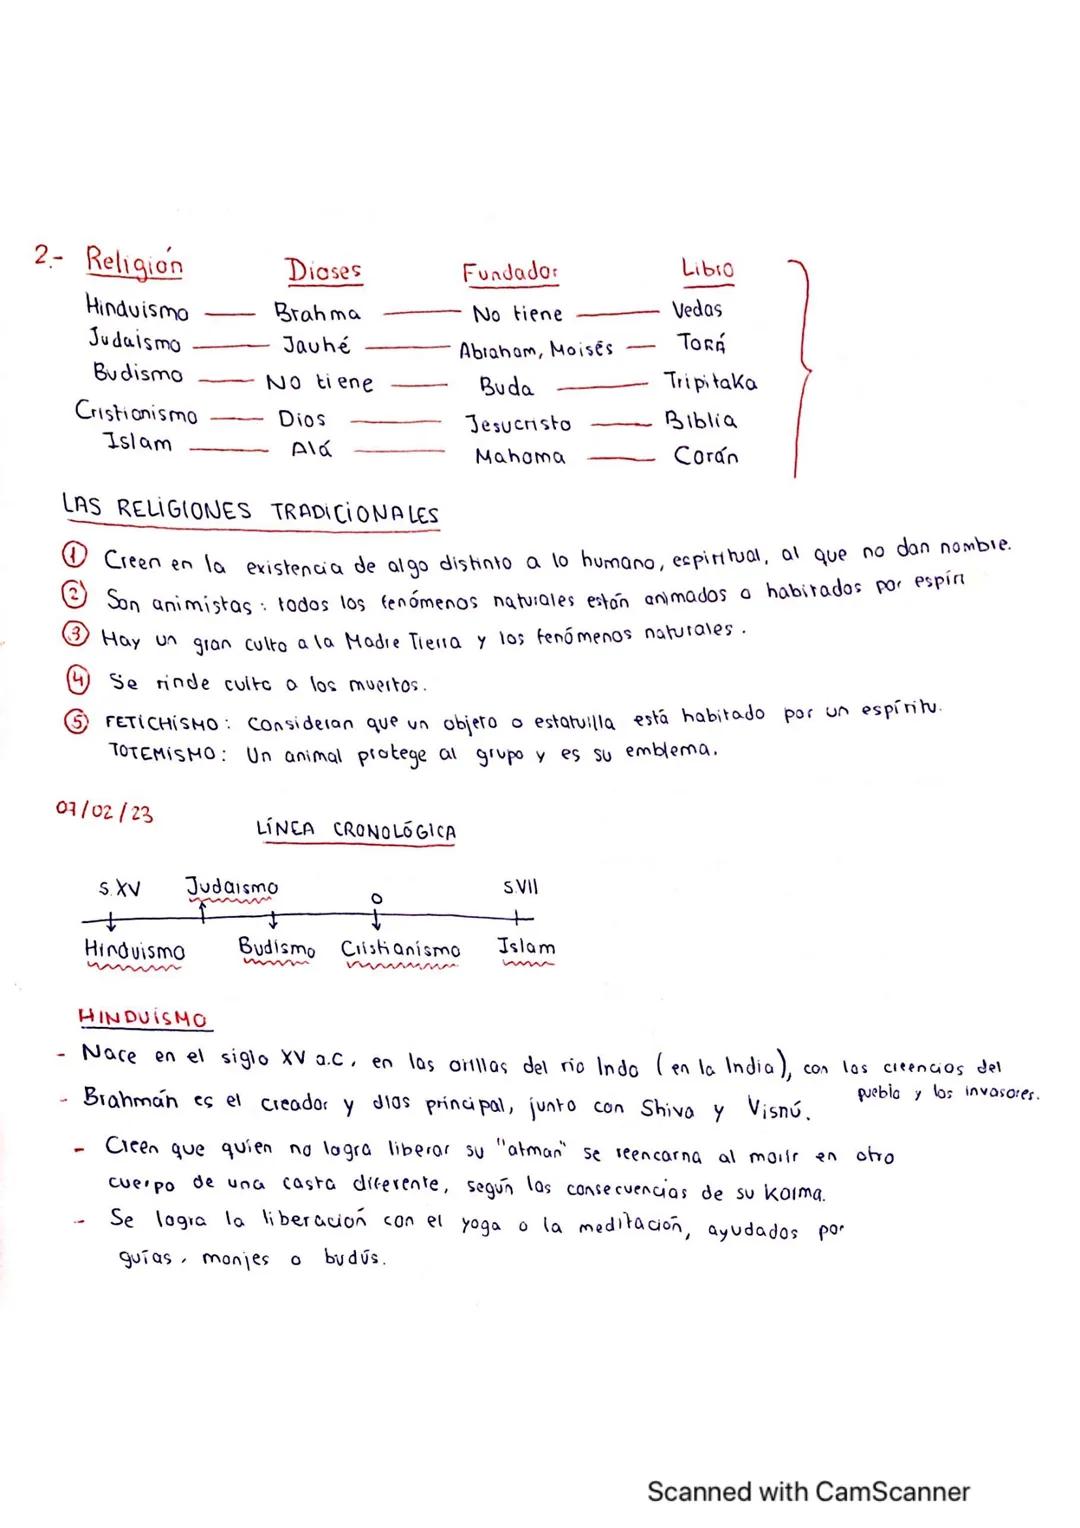 2.- Religión Dioses Fundador Libro
Hinduismo — Brahma — No tiene — Vedas
Judaísmo — Jauhé — Abraham, Moisés — Torá
Budismo — No tiene — Buda — Tripitaka
Cristianismo — Dios — Jesucristo — Biblia
Islam — Alá — Mahoma — Corán
LAS RELIGIONES TRADICIONALES
1 Creen en la existencia de algo distinto a lo humano, espiritual, al que no dan nombre.
2 Son animistas: todos los fenómenos naturales están animados o habitados por espíri
3 Hay un gran culto a la Madre Tierra y los fenómenos naturales.
4 Se rinde culto a los muertos.
5 FETICHISMO: Consideran que un objeto o estatuilla está habitado por un espíritu.
TOTEMISMO: Un animal protege al grupo y es su emblema.
07/02/23
LÍNEA CRONOLÓGICA
S.XV Judaísmo 0 S.VII
Hinduismo Budismo Cristianismo Islam
HINDUISMO
- Nace en el siglo XV a.C, en las orillas del río Indo (en la India), con las creencias del
pueblo y los invasores.
- Brahmán es el creador y dios principal, junto con Shiva y Visnú.
- Creen que quien no logra liberar su "atman" se reencarna al morir en otro
cuerpo de una casta diferente, según las consecuencias de su Karma.
- Se logra la liberación con el yoga o la meditación, ayudados por
guías, monjes o budús.
Scanned with CamScanner